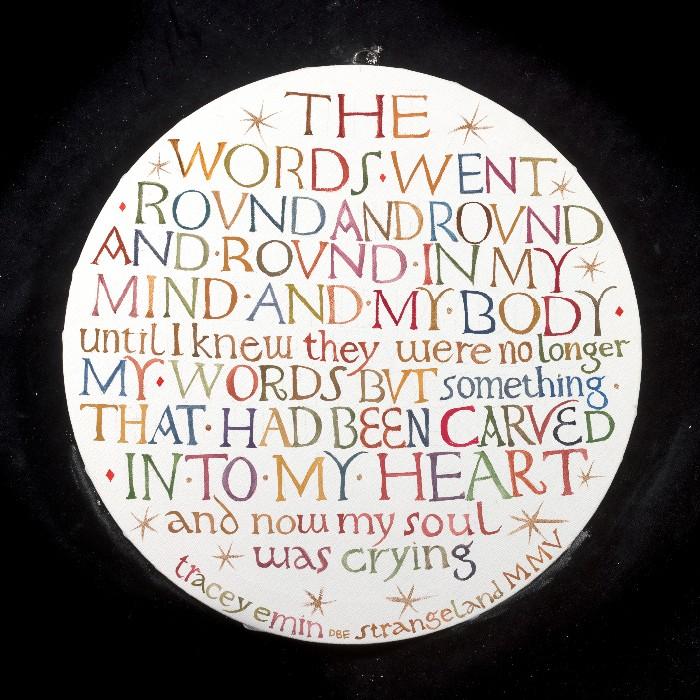 THE
WORDS·WENT
·ROVND AND ROVND
AND·ROVND·IN MY
MIND·AND·MY·BODY·
until I knew they were no longer
MY·WORDS BVT something·
THAT·HAD BEEN CARVED
·IN·TO·MY·HEART
and now my soul
was crying
tracey emin DBE strangeland MMV